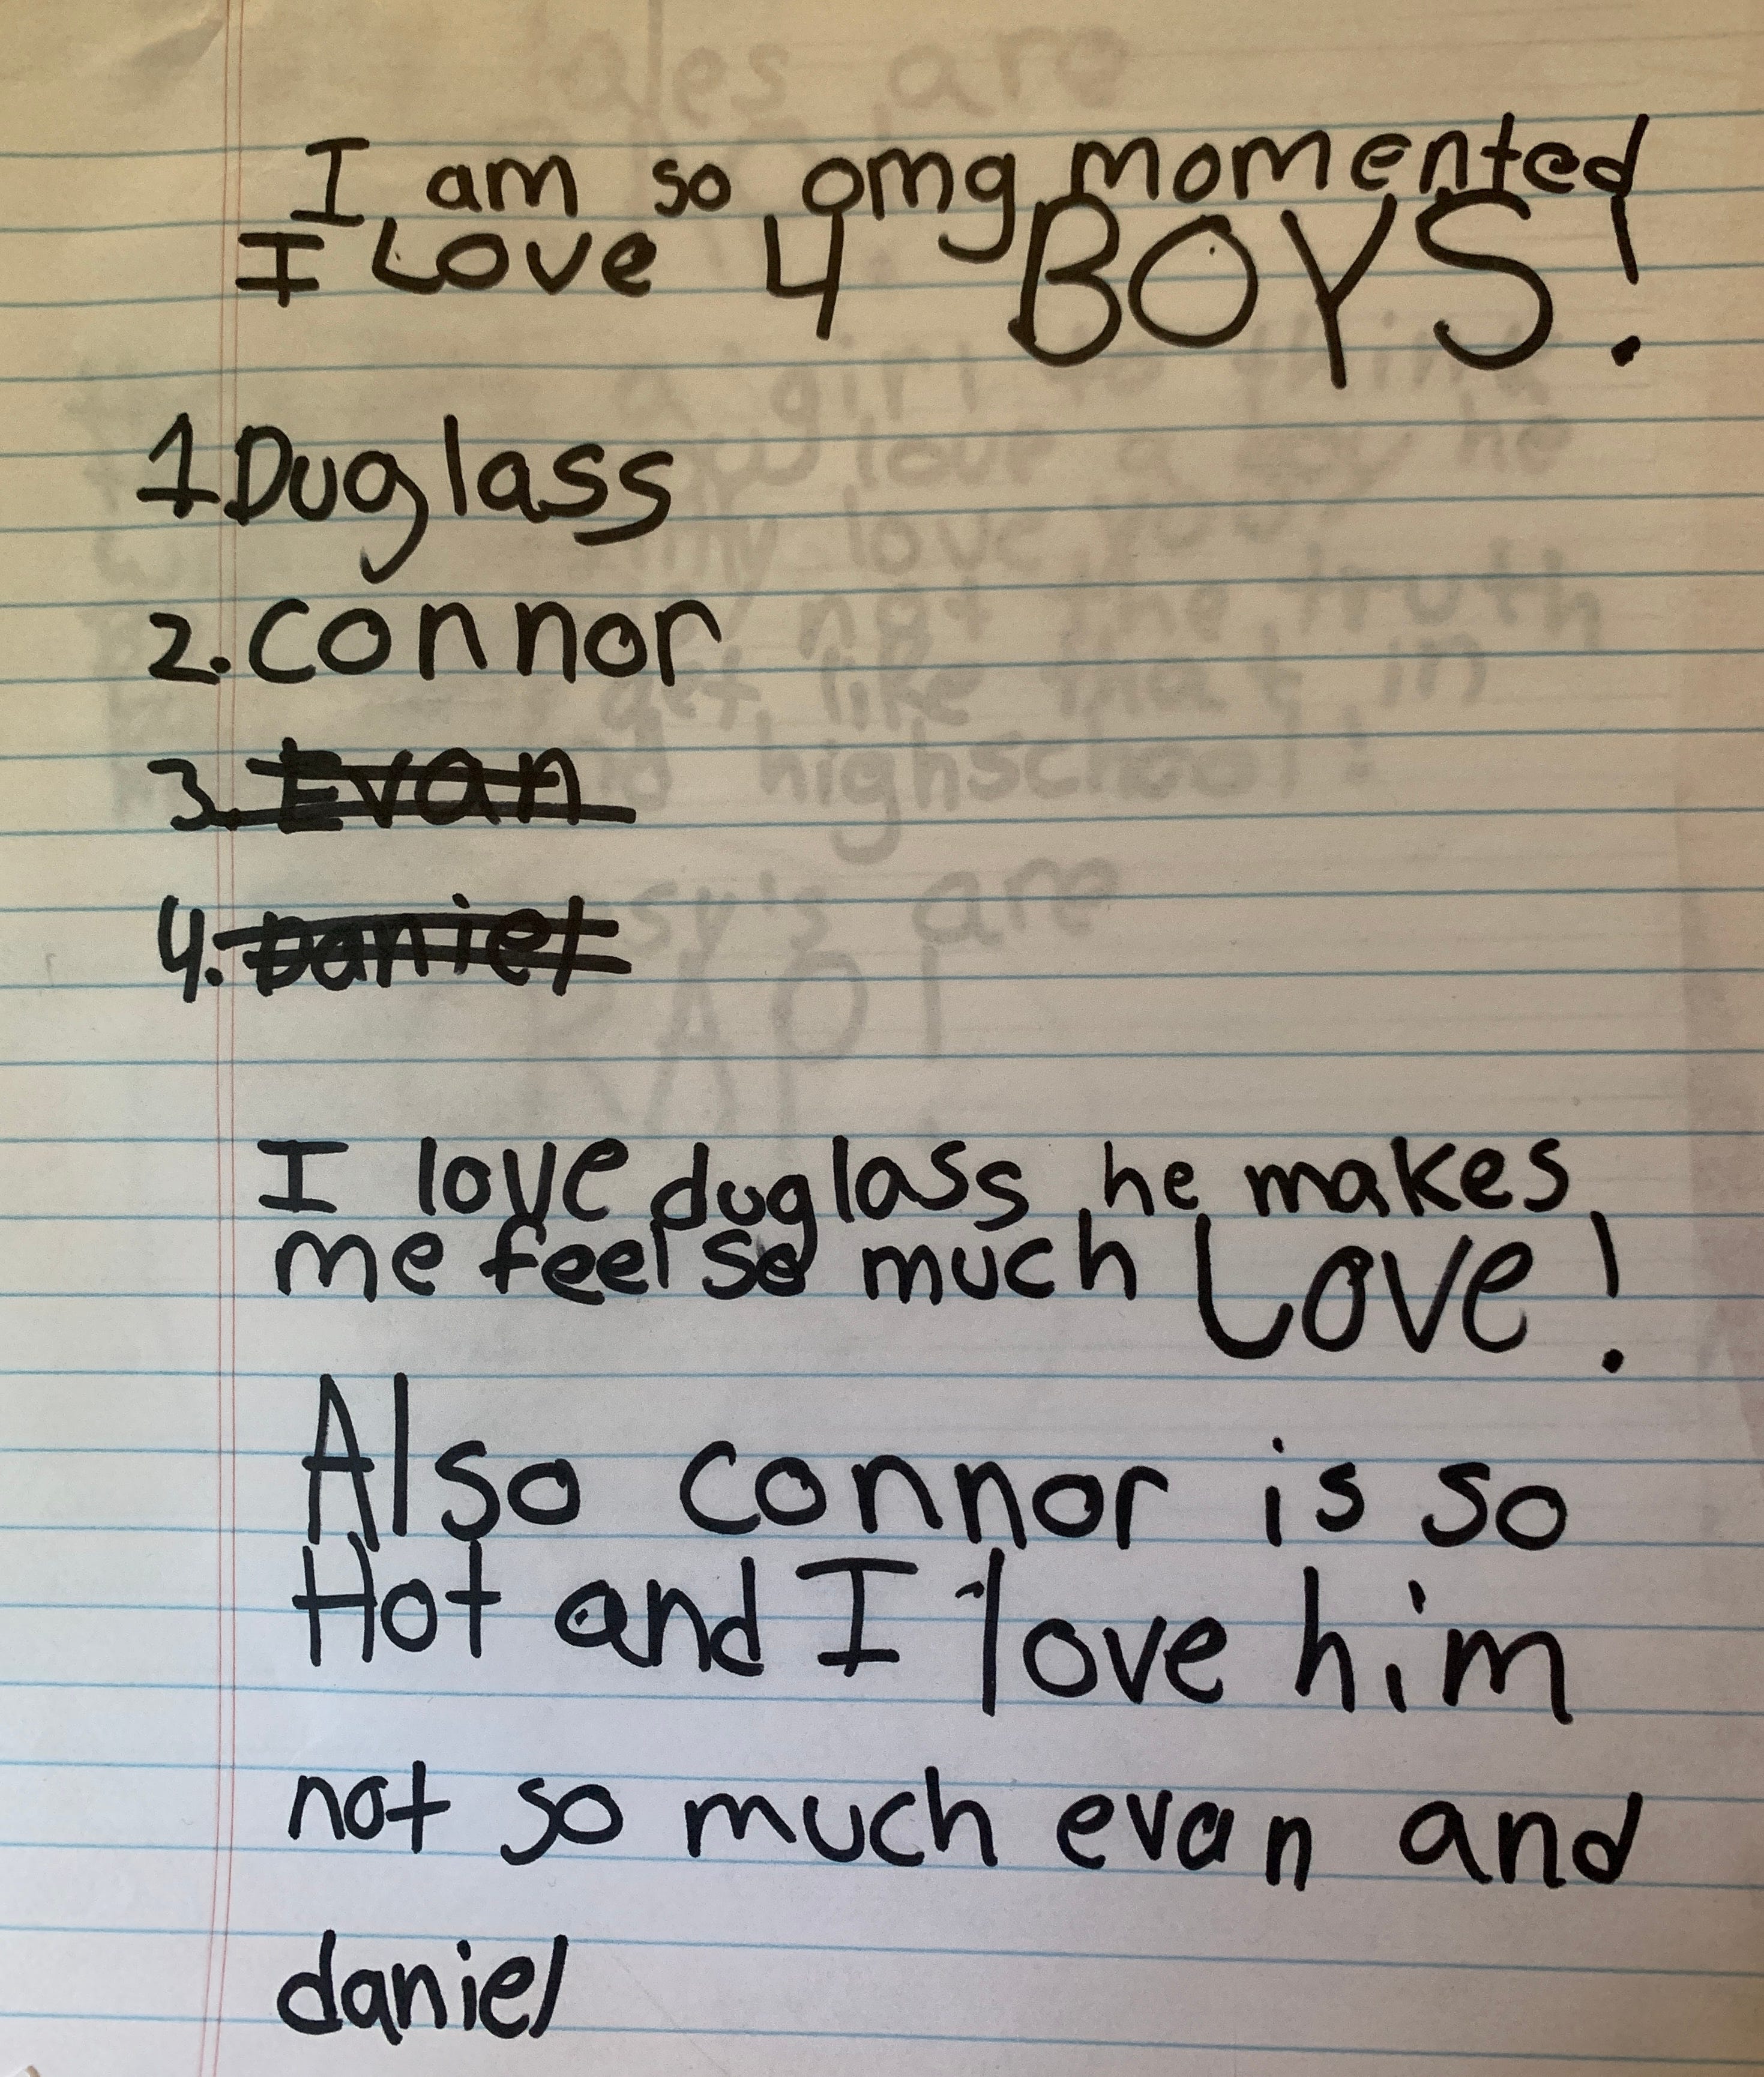 I am so omg momented
I Love 4 BOYS!
1.Duglass
2.Connor
3.Evan
4.Daniel
I love duglass he makes
me feel so much Love!
Also connor is so
Hot and I love him
not so much evan and
daniel